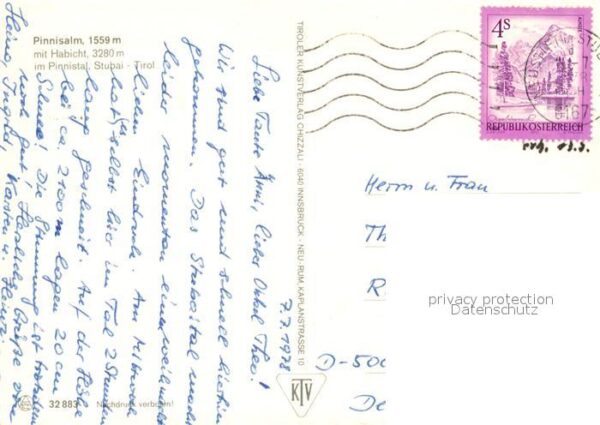 Pinnisalm, 1559 m
mit Habicht, 3280 m
im Pinnistal, Stubai - Tirol
7.7.1978
Liebe Tante Anni, lieber Onkel Theo!
Wir sind gut und schnell hierhin
gekommen. Das Stubaital macht
leider momentan einen
Eindruck. Am Mittwoch
hat's selbst hier im Tal 2 Stunden
lang geschneit. Auf der Höhe
bei ca. 2100 m lagen 20 cm
Schnee! Die Stimmung ist trotzdem
noch gut. Herzliche Grüße von
Heino, Ingrid, Karsten u.
32883
Nachdruck verboten!
TIROLER KUNSTVERLAG CHIZZALI · 6040 INNSBRUCK - NEU-RUM, KAPLANSTRASSE 10
KTV
4S
REPUBLIK ÖSTERREICH
6167
Herrn u. Frau
Th
R
D-500
De
privacy protection
Datenschutz